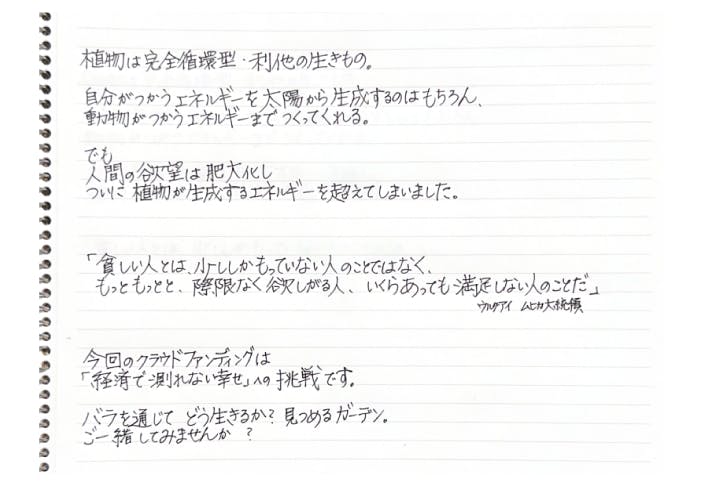 植物は完全循環型・利他の生きもの。
自分がつかうエネルギーを太陽から生成するのはもちろん、
動物がつかうエネルギーまでつくってくれる。
でも
人間の欲望は肥大化し
ついに植物が生成するエネルギーを超えてしまいました。
「貧しい人とは、少ししかもっていない人のことではなく、
もっともっとと、際限なく欲しがる人、いくらあっても満足しない人のことだ」
ウルグアイ ムヒカ大統領
今回のクラウドファンディングは
「経済で測れない幸せ」への挑戦です。
バラを通じて どう生きるか？見つめるガーデン。
ご一緒してみませんか ？